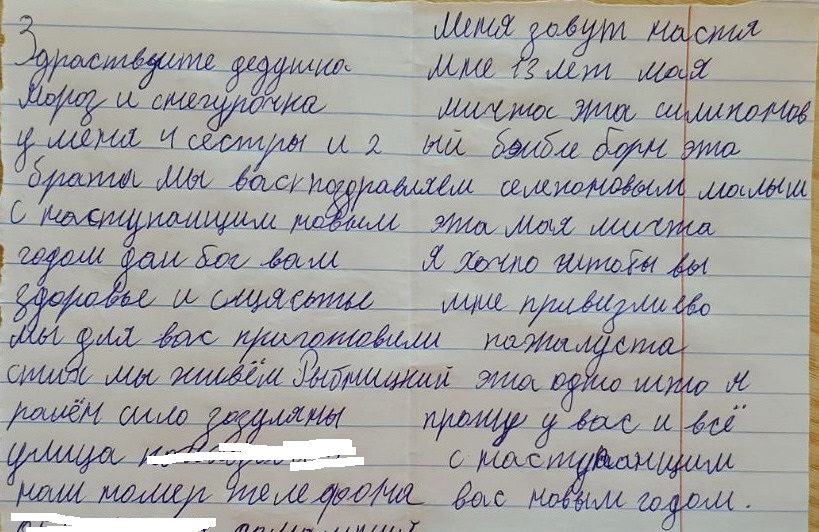 Здраствуите дедушка
Мороз и снегурочка
у меня 4 сестры и 2
браты мы васк поздравляем
с наступаищим новым
годом даи бог вам
здоровье и сщясьтье
мы для вас приготовили
стих мы живём Рыбницкий
раён сило зозуляны
улица
наш номер телефона
Меня зовут настя
мне 13 лет мая
мичта эта силиконов
ый бэибе борн эта
селеконовым малыш
эта мая мичта
я хочю штобы вы
мне привизли ево
пажалуста
эта одно што я
прошу у вас и всё
с наступаищим
вас новым годом.